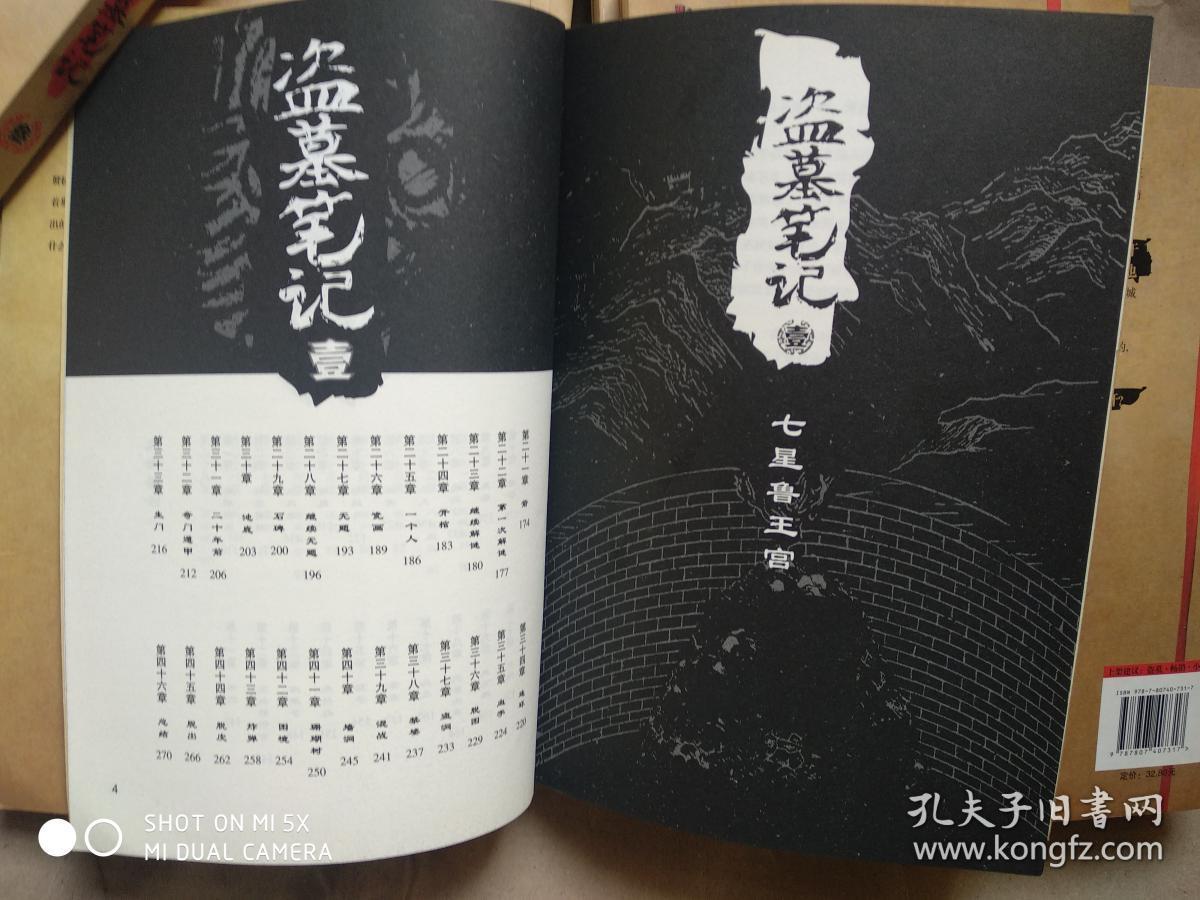 盗墓笔记
壹
第二十一章 第174
第二十二章 第一次解谜 177
第二十三章 继续解谜 180
第二十四章 开棺 183
第二十五章 一个人 186
第二十六章 瓷画 189
第二十七章 无题 193
第二十八章 继续无题 196
第二十九章 石碑 200
第三十章 池底 203
第三十一章 二十年前 206
第三十二章 奇门遁甲 212
第三十三章 生门 216
第三十四章 连环 220
第三十五章 血手 224
第三十六章 脱困 229
第三十七章 盗洞 233
第三十八章 禁婆 237
第三十九章 混战 241
第四十章 墙洞 245
第四十一章 珊瑚树 250
第四十二章 困境 254
第四十三章 炸弹 258
第四十四章 脱皮 262
第四十五章 脱出 266
第四十六章 总结 270
4
盗墓笔记
壹
七星鲁王宫
上架建议：盗墓·畅销·小
ISBN 978-7-80740-731-7
9 787807 407317
定价：32.80元
城
的.
SHOT ON MI 5X
MI DUAL CAMERA
孔夫子旧书网
www.kongfz.com